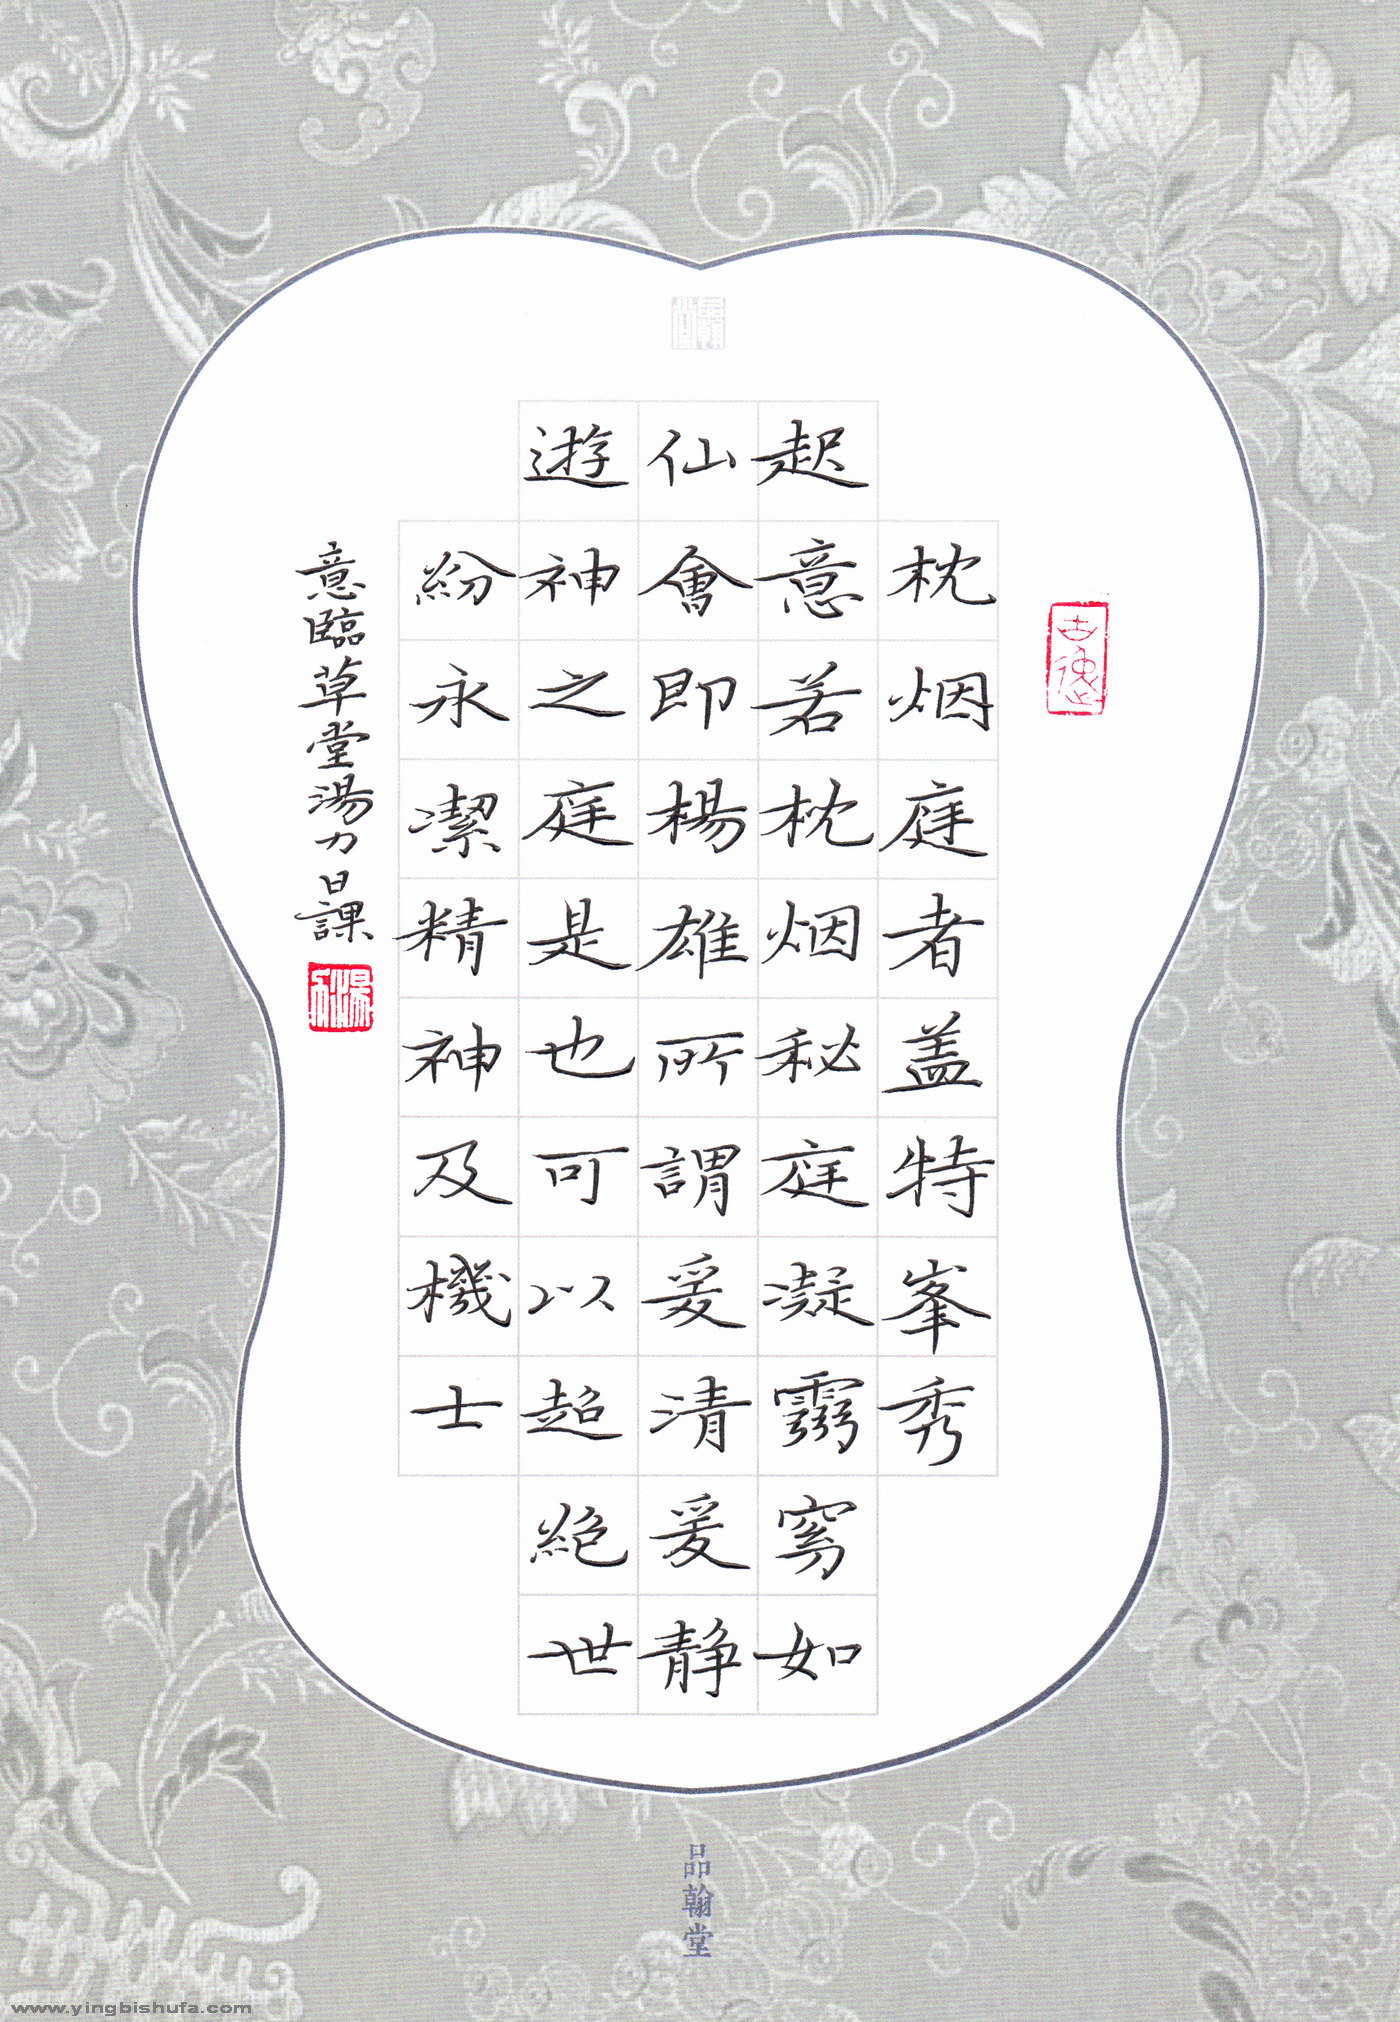 枕烟庭者盖特峯秀
起意若枕烟秘庭凝霛窮如
仙會即楊雄所謂爰清爰静
遊神之庭是也可以超絶世
紛永潔精神及機士
意臨草堂湯力日課
品翰堂
www.yingbishufa.com